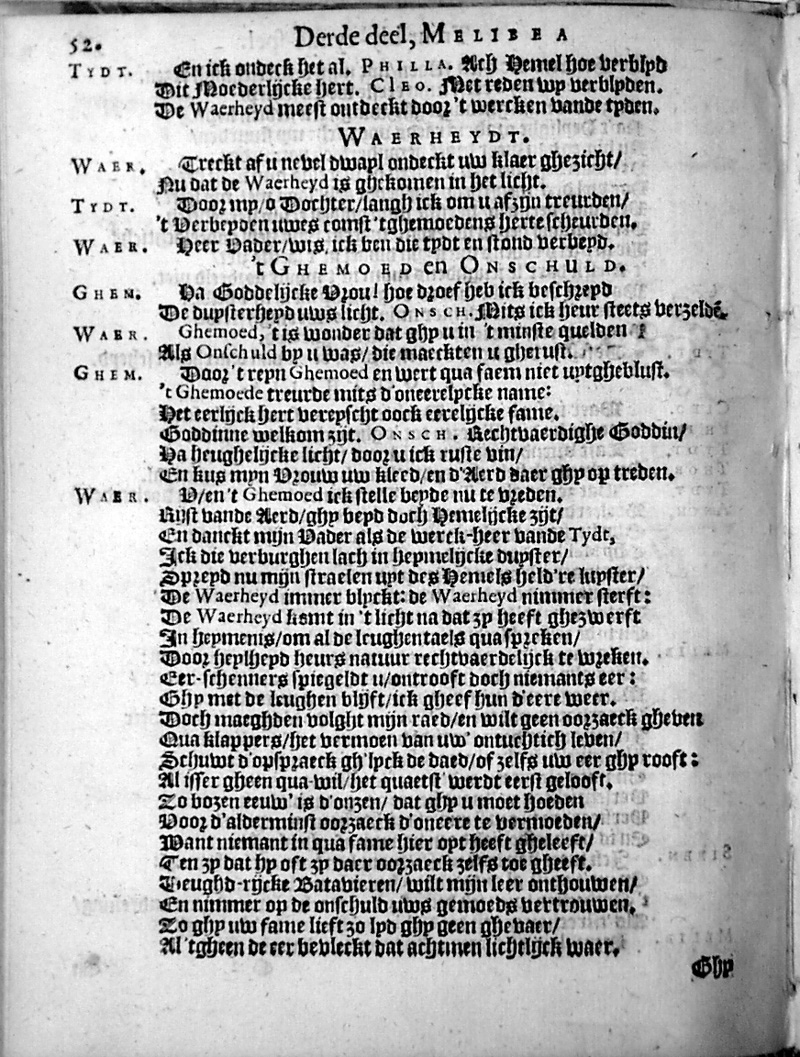 52. Derde deel, MELIBEA
TYDT. En ick ondeck het al. PHILLA. Ach Hemel hoe verblyd
Dit Moederlijcke hert. CLEO. Met reden wy verblyden.
De Waerheyd meest ontdeckt door 't wercken vande tyden.
WAERHEYDT.
WAER. Treckt af u nevel dwayl ondeckt uw klaer ghezicht/
Nu dat de Waerheyd is ghekomen in het licht.
TYDT. Door my/o Dochter/langh ick om u afzijn treurden/
't Verbeyden uwes comst 'tghemoedens herte scheurden.
WAER. Heer Vader/wis, ick ben die tydt en stond verbeyd.
't GHEMOED en ONSCHULD.
GHEM. Ha Goddelijcke Vrou! hoe droef heb ick beschreyd
De duysterheyd uws licht. ONSCH. Mits ick heur steets verzeldē.
WAER. Ghemoed, 't is wonder dat ghy u in 't minste quelden
Als Onschuld by u was/ die maeckten u gherust.
GHEM. Door 't reyn Ghemoed en wert qua faem niet uytgheblust.
't Ghemoede treurde mits d'oneerelycke name:
Het eerlijck hert vereyscht oock eerelijcke fame.
Goddinne welkom zijt. ONSCH. Rechtvaerdighe Goddin/
Ha heughelijcke licht/ door u ick ruste vin/
En kus myn Vrouw uw kleed/en d'Aerd daer ghy op treden.
WAER. V/en 't Ghemoed ick stelle beyde nu te vreden.
Rijst vande Aerd/ghy beyd doch Hemelijcke zijt/
En danckt mijn Vader als de werck-heer vande Tydt,
Ick die verburghen lach in heymelijcke duyster/
Spreyd nu mijn straelen uyt des Hemels held're luyster/
De Waerheyd immer blyckt: de Waerheyd nimmer sterft:
De Waerheyd komt in 't licht na dat zy heeft ghezwerft
In heymenis/om al de leughentaels qua spreken/
Door heylheyd heurs natuur rechtvaerdelijck te wreken.
Eer-schenners spiegeldt u/ontrooft doch niemants eer:
Ghy met de leughen blyft/ick gheef hun d'eere weer.
Doch maeghden volght mijn raed/en wilt geen oorzaeck gheven
Qua klappers/het vermoen van uw' ontuchtich leven/
Schuwt d'opspraeck gh'lyck de daed/of zelfs uw eer ghy rooft:
Al isser gheen qua-wil/het quaetst' werdt eerst gelooft.
Zo bozen eeuw' is d'onzen/ dat ghy u moet hoeden
Voor d'alderminst oorzaeck d'oneere te vermoeden/
Want niemant in qua fame hier oyt heeft gheleeft/
Ten zy dat hy oft zy daer oorzaeck zelfs toe gheeft.
Deughd-rijcke Batavieren/ wilt mijn leer onthouwen/
En nimmer op de onschuld uws gemoeds vertrouwen.
Zo ghy uw fame lieft zo lyd ghy geen ghevaer/
Al 'tgheen de eer bevleckt dat achtmen lichtlijck waer.
Ghy